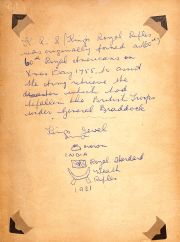 K. R. R. (Kings Royal Rifles
was originally formed as
60th Royal Americans on
Xmas Day 1755, to assist
the Army retrieve the
disaster which had
befallen the British Troops
under General Braddock
Kings Jewel
INDIA
Royal Standard
Wreath
Rifles
1921